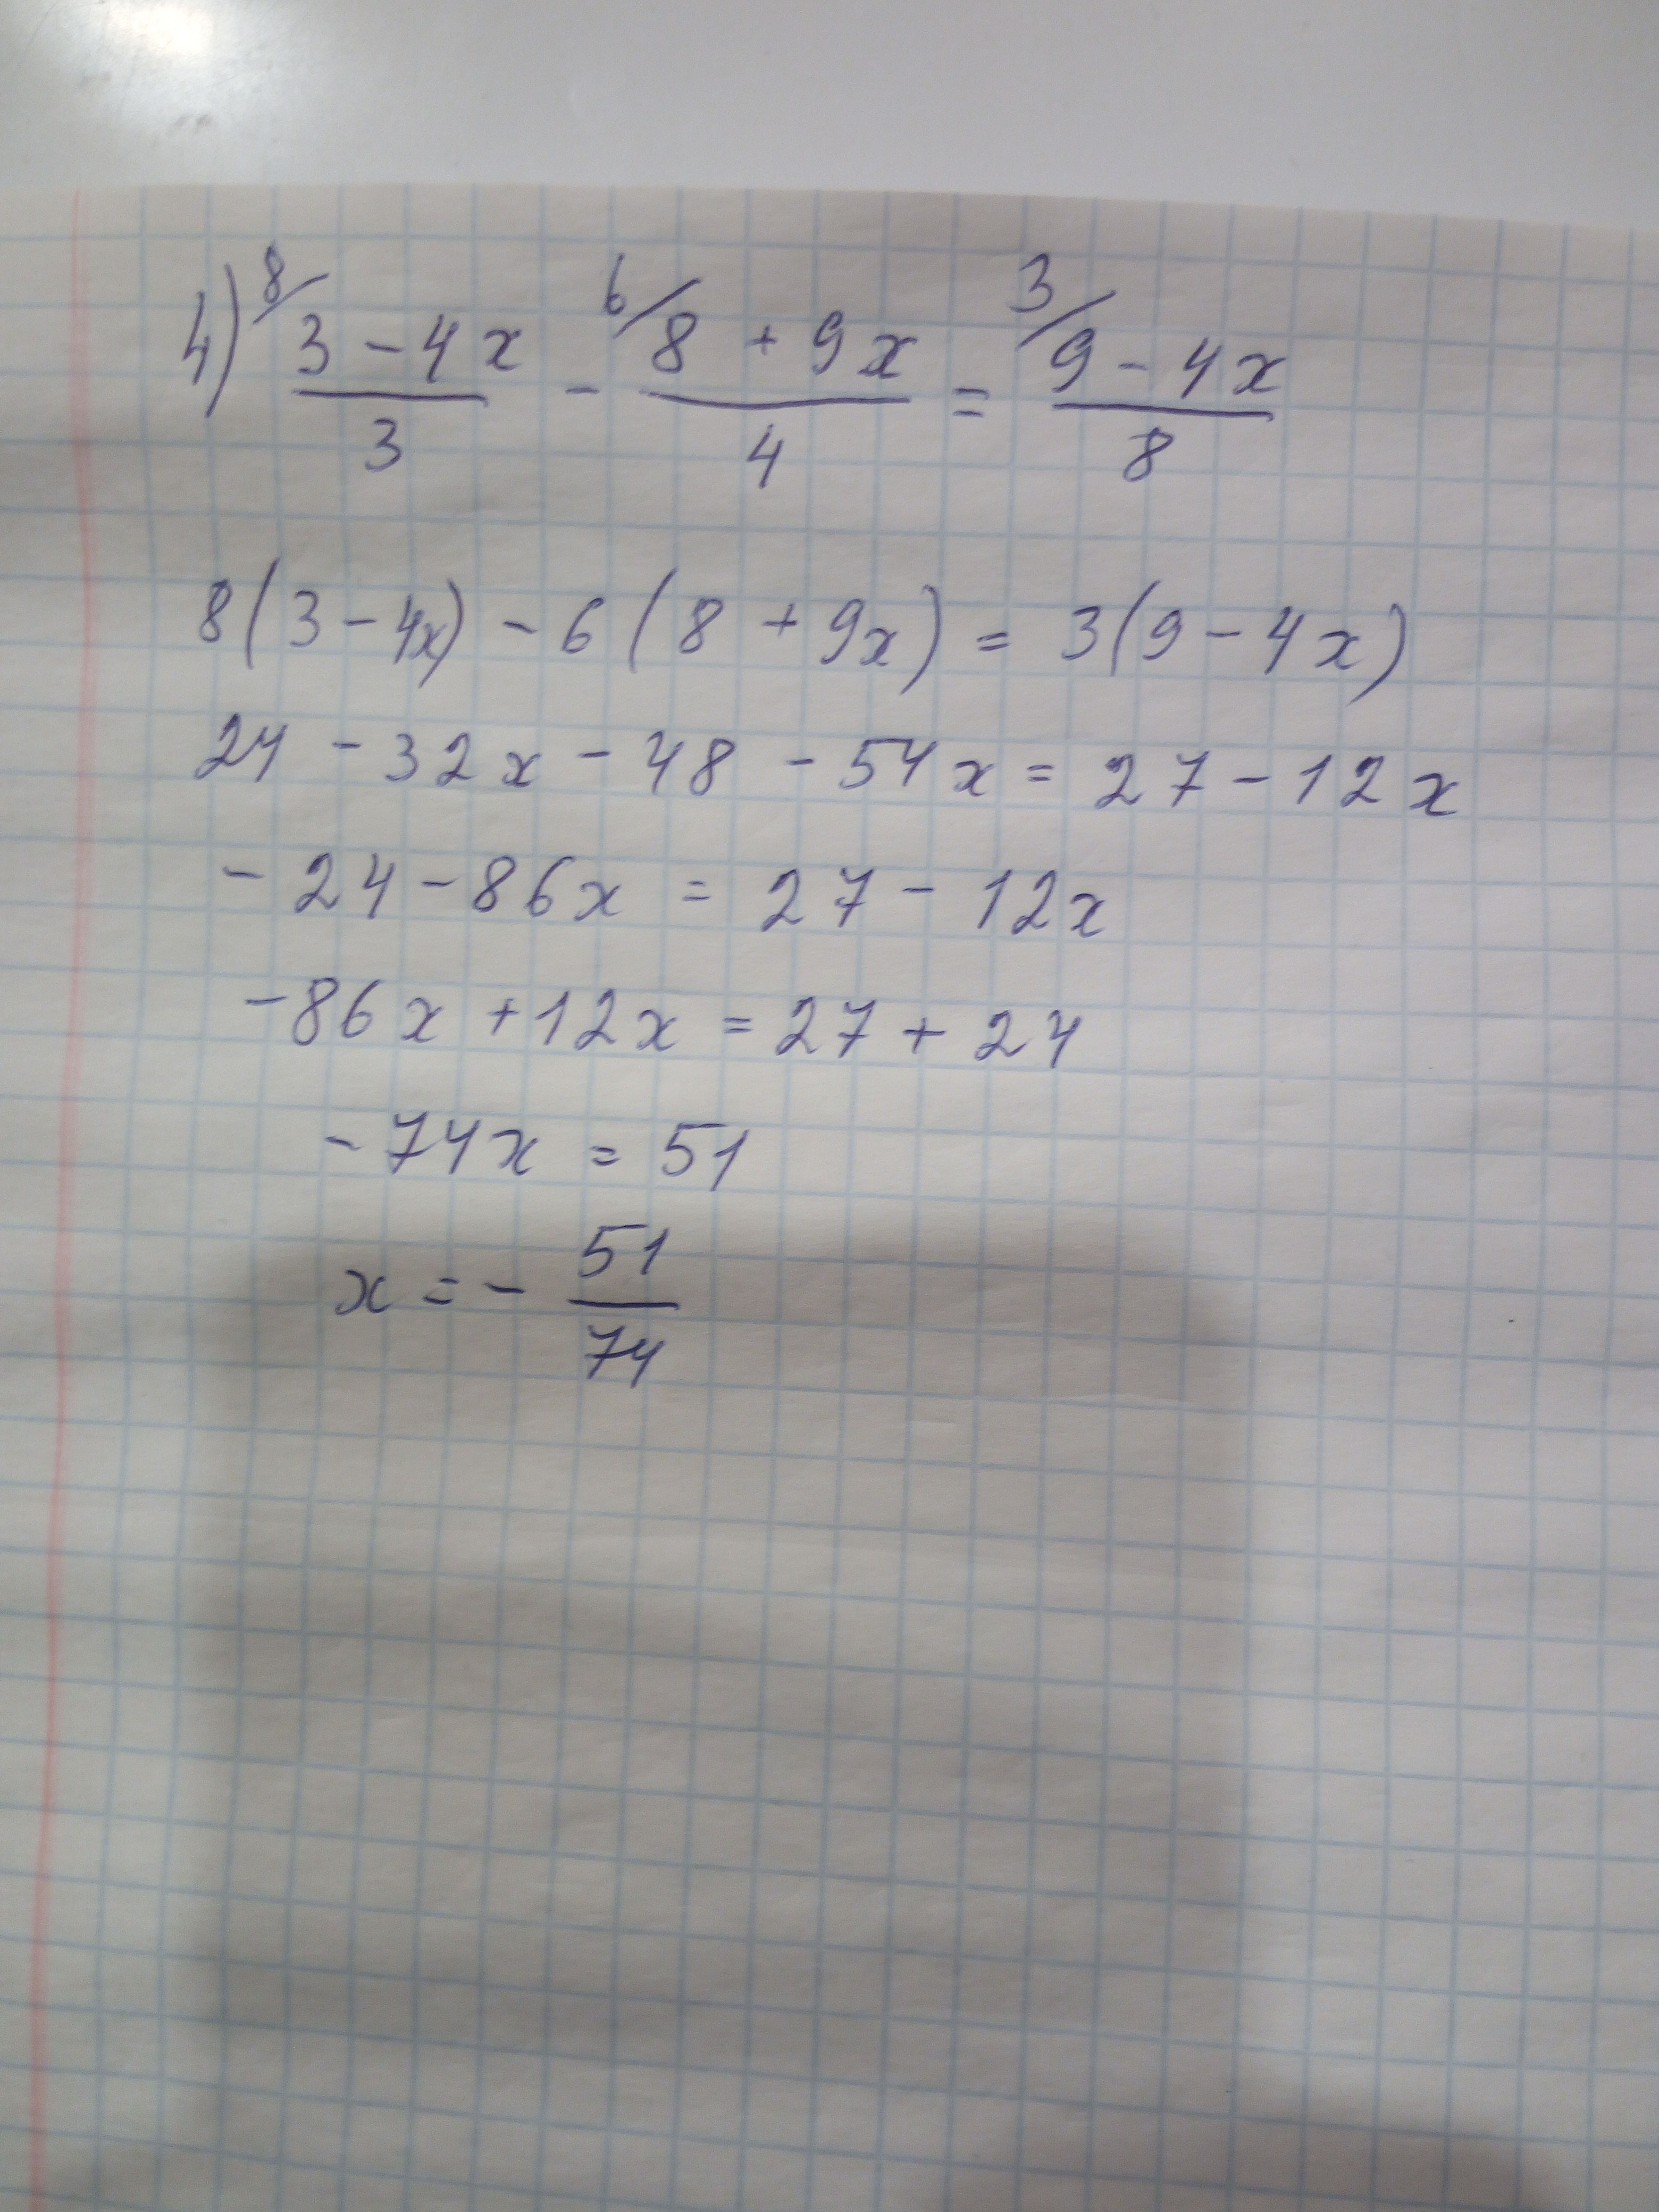 4) 8/ 3 - 4x / 3 - 6/ 8 + 9x / 4 = 3/ 9 - 4x / 8
8(3 - 4x) - 6(8 + 9x) = 3(9 - 4x)
24 - 32x - 48 - 54x = 27 - 12x
- 24 - 86x = 27 - 12x
- 86x + 12x = 27 + 24
- 74x = 51
x = - 51/74